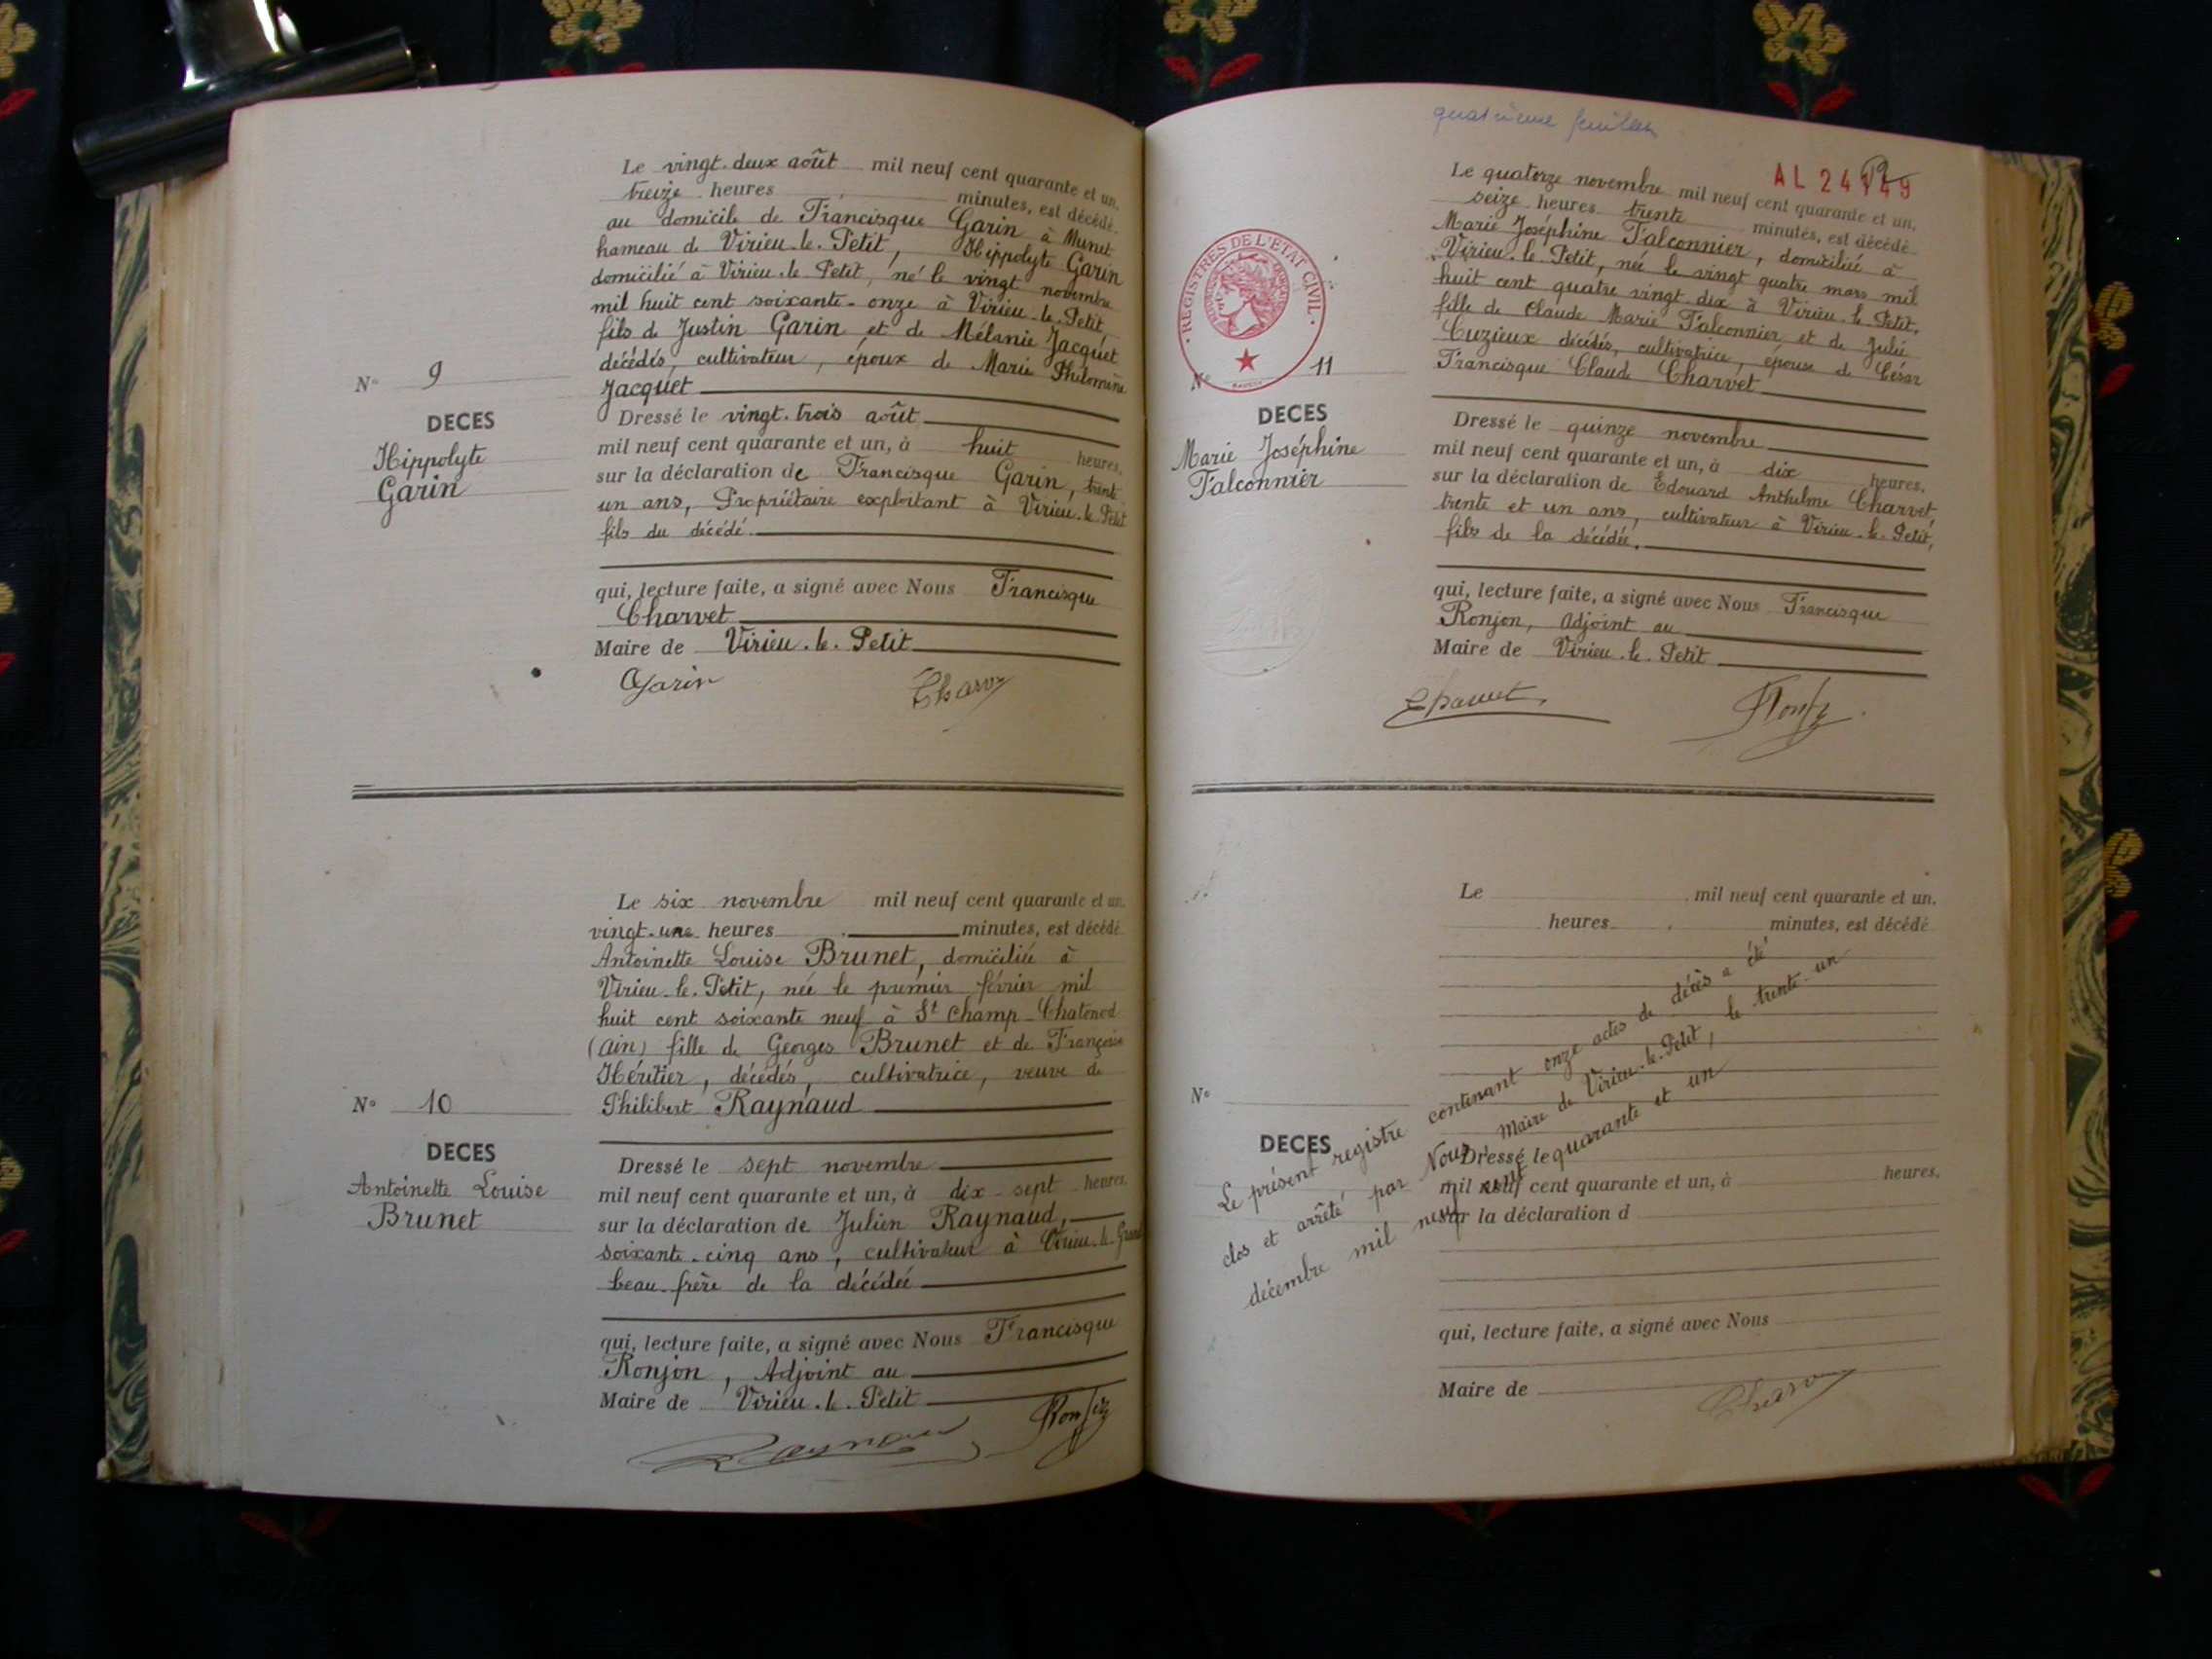 Le vingt-deux août mil neuf cent quarante et un,
treize heures minutes, est décédé
au domicile de Francisque Garin à Munet
hameau de Virieu-le-Petit, Hippolyte Garin
domicilié à Virieu-le-Petit, né le vingt novembre
mil huit cent soixante-onze à Virieu-le-Petit
fils de Justin Garin et de Mélanie Jacquet
décédés, cultivateur, époux de Marie Philomène
Jacquet
N° 9
DECES
Hippolyte
Garin
Dressé le vingt-trois août
mil neuf cent quarante et un, à huit heures,
sur la déclaration de Francisque Garin, trente
un ans, Propriétaire exploitant à Virieu-le-Petit
fils du décédé.
qui, lecture faite, a signé avec Nous Francisque
Charvet
Maire de Virieu-le-Petit
Garin
Le six novembre mil neuf cent quarante et un,
vingt-une heures minutes, est décédé
Antoinette Louise Brunet, domiciliée à
Virieu-le-Petit, née le premier février mil
huit cent soixante neuf à St Champ-Chatonod
(Ain) fille de Georges Brunet et de Françoise
Héritier, décédés, cultivatrice, veuve de
Philibert Raynaud
N° 10
DECES
Antoinette Louise
Brunet
Dressé le sept novembre
mil neuf cent quarante et un, à dix-sept heures,
sur la déclaration de Julien Raynaud,
soixante-cinq ans, cultivateur à Virieu-le-Grand
beau-frère de la décédée
qui, lecture faite, a signé avec Nous Francisque
Ronjon, Adjoint au
Maire de Virieu-le-Petit
quatrième feuillet
AL 24
REGISTRES DE L'ETAT CIVIL
Le quatorze novembre mil neuf cent quarante et un,
seize heures trente minutes, est décédé
Marie Joséphine Falconnier, domiciliée à
Virieu-le-Petit, née le vingt quatre mars mil
huit cent quatre vingt-dix à Virieu-le-Petit,
fille de Claude Marie Falconnier et de Julie
Cuzieux décédés, cultivatrice, épouse de César
Francisque Claude Charvet
N° 11
DECES
Marie Joséphine
Falconnier
Dressé le quinze novembre
mil neuf cent quarante et un, à dix heures,
sur la déclaration de Edouard Anthelme Charvet
trente et un ans, cultivateur à Virieu-le-Petit,
fils de la décédée.
qui, lecture faite, a signé avec Nous Francisque
Ronjon, Adjoint au
Maire de Virieu-le-Petit
Charvet
Le mil neuf cent quarante et un,
heures minutes, est décédé
N°
DECES
Dressé le
mil neuf cent quarante et un, à heures,
sur la déclaration d
qui, lecture faite, a signé avec Nous
Maire de
Le présent registre contenant onze actes de décès a été
clos et arrêté par Nous, Maire de Virieu-le-Petit, le trente-un
décembre mil neuf cent quarante et un